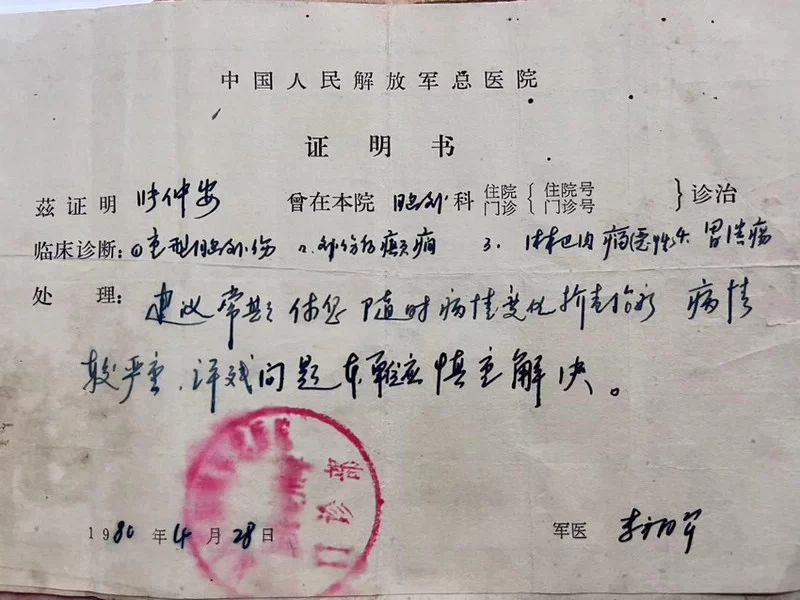 中国人民解放军总医院
证明书
兹证明 仲安 曾在本院 脑外科 住院 门诊 { 住院号 门诊号 } 诊治
临床诊断：①重型脑外伤 2.外伤后癫痫 3. 淋巴肉瘤 4.胃溃疡
处理：建议常期休息 随时病情变化 病情
较严重，评残问题 应慎重解决。
门诊部
1980年4月28日 军医 李